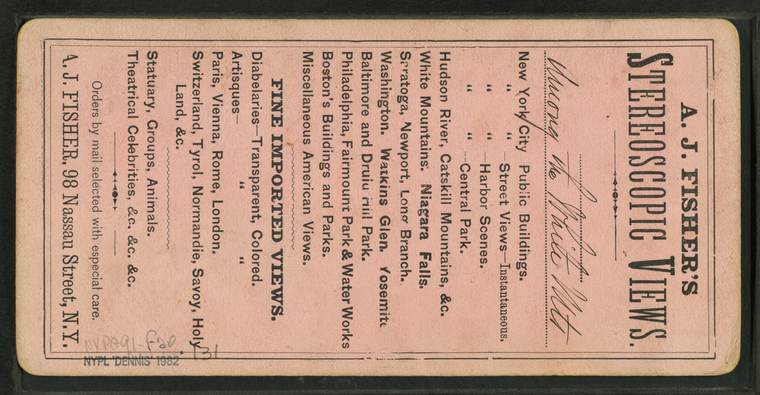 A. J. FISHER'S
STEREOSCOPIC VIEWS.
Among the White Mts
New York City Public Buildings.
" " Street Views—Instantaneous.
" " —Harbor Scenes.
" " —Central Park.
Hudson River, Catskill Mountains, &c.
White Mountains. Niagara Falls.
Saratoga, Newport, Long Branch.
Washington. Watkins Glen. Yosemite
Baltimore and Druid Hill Park.
Philadelphia, Fairmount Park & Water Works
Boston's Buildings and Parks.
Miscellaneous American Views.
FINE IMPORTED VIEWS.
Diabelaries—Transparent, Colored.
Artisques— " "
Paris, Vienna, Rome, London.
Switzerland, Tyrol, Normandie, Savoy, Holy
Land, &c.
Statuary, Groups, Animals.
Theatrical Celebrities, &c. &c. &c.
Orders by mail selected with especial care.
A. J. FISHER, 98 Nassau Street, N.Y.
NYPL 'DENNIS' 1982
131